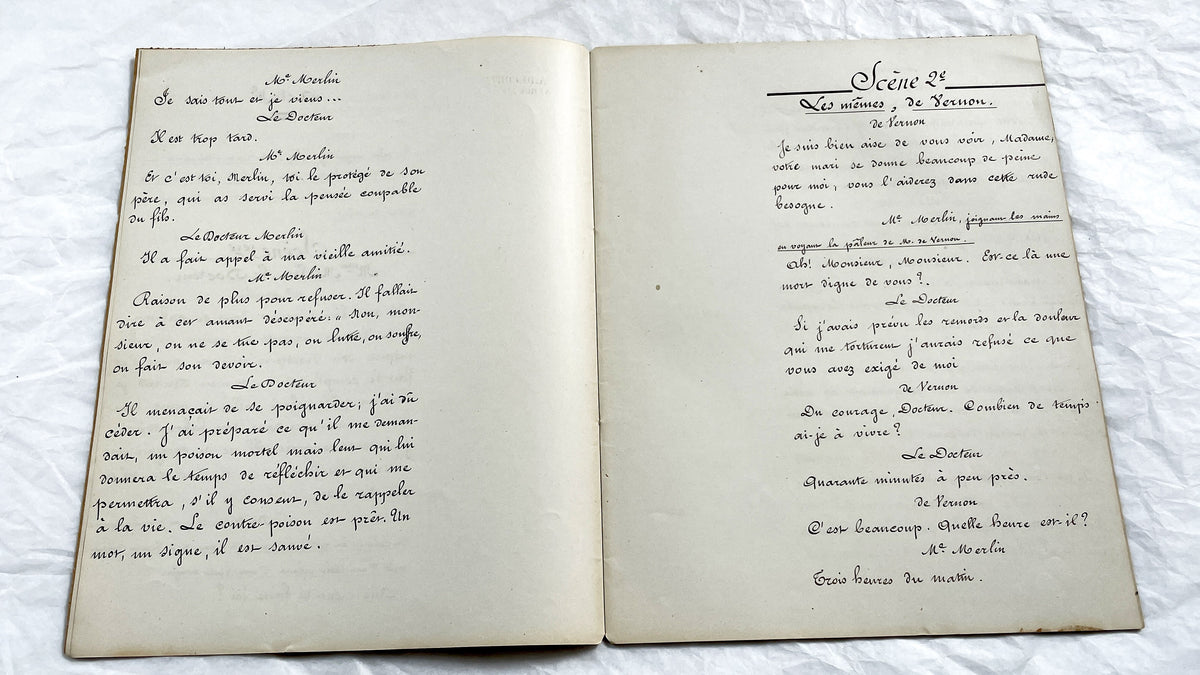 Me Merlin
Je sais tout et je viens...
Le Docteur
Il est trop tard.
Me Merlin
Et c'est toi, Merlin, toi le protégé de son
père, qui as servi la pensée coupable
du fils.
Le Docteur Merlin
Il a fait appel à ma vieille amitié.
Me Merlin
Raison de plus pour refuser. Il fallait
dire à cet amant désespéré: " Non, mon-
sieur, on ne se tue pas, on lutte, on souffre,
on fait son devoir.
Le Docteur
Il menaçait de se poignarder; j'ai dû
céder. J'ai préparé ce qu'il me deman-
dait, un poison mortel mais lent qui lui
donnera le temps de réfléchir et qui me
permettra, s'il y consent, de le rappeler
à la vie. Le contre-poison est prêt. Un
mot, un signe, il est sauvé.
Scène 2e
Les mêmes, de Vernon.
de Vernon
Je suis bien aise de vous voir, Madame,
votre mari se donne beaucoup de peine
pour moi, vous l'aiderez dans cette rude
besogne.
Me Merlin, joignant les mains
en voyant la pâleur de M. de Vernon.
Ah! Monsieur, Monsieur. Est-ce là une
mort digne de vous?
Le Docteur
Si j'avais prévu les remords et la douleur
qui me torturent j'aurais refusé ce que
vous avez exigé de moi
de Vernon
Du courage, Docteur. Combien de temps
ai-je à vivre?
Le Docteur
Quarante minutes à peu près.
de Vernon
C'est beaucoup. Quelle heure est-il?
Me Merlin
Trois heures du matin.